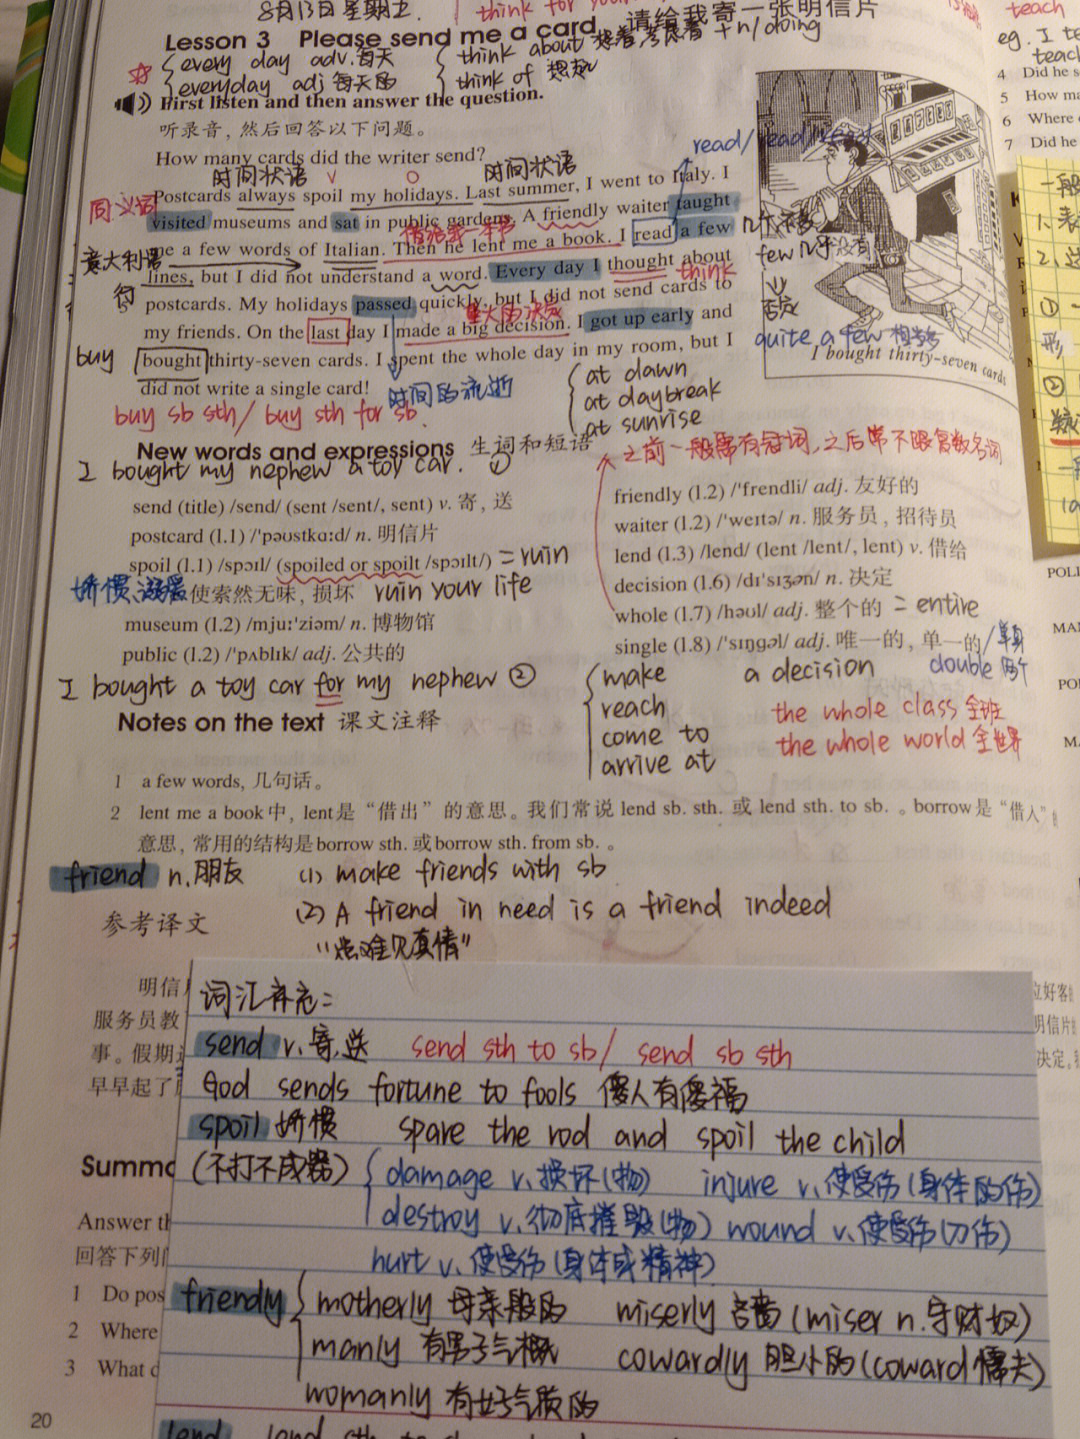 8月13日 星期
think for you
Lesson 3 Please send me a card 请给我寄一张明信片
every day adv. 每天
everyday adj 每天的
think about 想着考虑着 + n/doing
think of 想起
First listen and then answer the question.
听录音，然后回答以下问题。
How many cards did the writer send?
时间状语
时间状语
read/read/read
Postcards always spoil my holidays. Last summer, I went to Italy. I
同义词
visited museums and sat in public gardens. A friendly waiter taught
借给我一本书
me a few words of Italian. Then he lent me a book. I read a few
意大利语
few 几乎没有
否定
lines, but I did not understand a word. Every day I thought about
think
postcards. My holidays passed quickly, but I did not send cards to
重大的决定
my friends. On the last day I made a big decision. I got up early and
quite a few 相当多
buy
bought thirty-seven cards. I spent the whole day in my room, but I
did not write a single card!
时间的流逝
at dawn
at daybreak
at sunrise
I bought thirty-seven cards
buy sb sth/ buy sth for sb.
New words and expressions 生词和短语
之前一般需有冠词，之后常不跟复数名词
I bought my nephew a toy car. ①
send (title) /send/ (sent /sent/, sent) v. 寄，送
postcard (l.1) /'pəʊstkɑ:d/ n. 明信片
spoil (l.1) /spɔɪl/ (spoiled or spoilt /spɔɪlt/) = ruin
娇惯、溺爱 使索然无味，损坏 ruin your life
museum (l.2) /mju:'ziəm/ n. 博物馆
public (l.2) /'pʌblɪk/ adj. 公共的
friendly (l.2) /'frendli/ adj. 友好的
waiter (l.2) /'weɪtə/ n. 服务员，招待员
lend (l.3) /lend/ (lent /lent/, lent) v. 借给
decision (l.6) /dɪ'sɪʒən/ n. 决定
whole (l.7) /həʊl/ adj. 整个的 = entire
single (l.8) /'sɪŋgəl/ adj. 唯一的，单一的/单身
double 两个
I bought a toy car for my nephew ②
make
reach
come to
arrive at
a decision
the whole class 全班
the whole world 全世界
Notes on the text 课文注释
1 a few words, 几句话。
2 lent me a book中，lent是“借出”的意思。我们常说 lend sb. sth. 或 lend sth. to sb. 。borrow是“借入”的
意思，常用的结构是borrow sth. 或borrow sth. from sb. 。
friend n.朋友 (1) make friends with sb
(2) A friend in need is a friend indeed
“患难见真情”
参考译文
明信
服务员教
事。假期
早早起了
立好客的
明信片的
决定。我
词汇补充：
send v.寄,送 send sth to sb/ send sb sth
God sends fortune to fools 傻人有傻福
spoil 娇惯 spare the rod and spoil the child
(不打不成器)
damage v.损坏(物) injure v.使受伤(身体的伤)
destroy v.彻底摧毁(物) wound v.使受伤(刀伤)
hurt v.使受伤(身体或精神)
friendly
motherly 母亲般的 miserly 吝啬(miser n.守财奴)
manly 有男子气概 cowardly 胆小的(coward 懦夫)
womanly 有女子气质的
Summa
Answer th
回答下列
1 Do pos
2 Where
3 What d
20
teach
eg. I te
4 Did he s
5 How ma
6 Where
7 Did he
一般
1. 表
2. 送
①
②
POLI
MAN